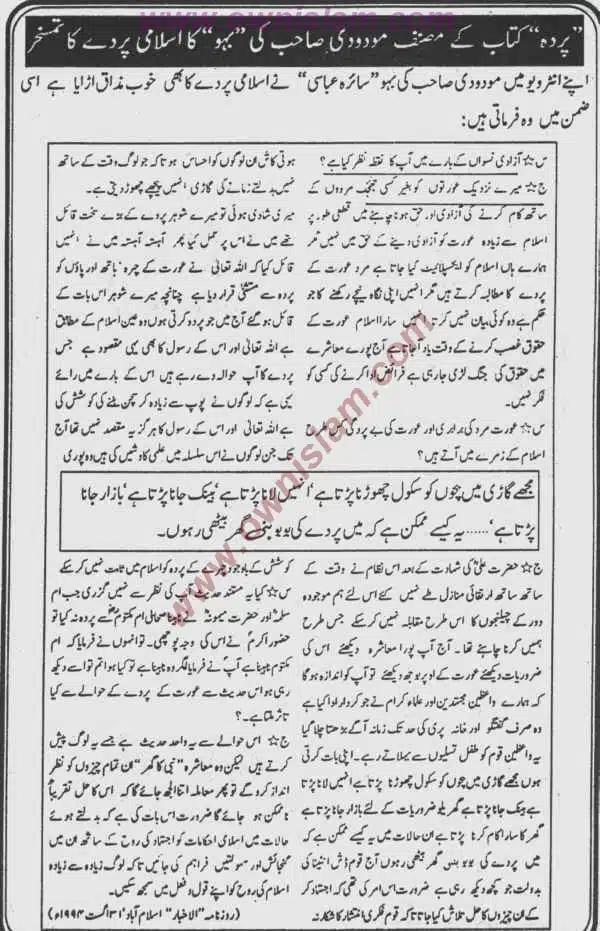 www.ownislam.com
”پردہ“ کتاب کے مصنف مودودی صاحب کی ”بہو“ کا اسلامی پردے کا تمسخر
اپنے انٹرویو میں مودودی صاحب کی بہو ”سائرہ عباسی“ نے اسلامی پردے کا بھی خوب مذاق اڑایا ہے اسی
ضمن میں وہ فرماتی ہیں:
س☆ آزادی نسواں کے بارے میں آپ کا نقطہ نظر کیا ہے؟
ج☆ میرے نزدیک عورتوں کو بغیر کسی جھجک مردوں کے
ساتھ کام کرنے کی آزادی اور حق ہونا چاہئے میں قطعی طور پر
اسلام سے زیادہ عورت کو آزادی دینے کے حق میں نہیں مگر
ہمارے ہاں اسلام کو ایکسپلائیٹ کیا جاتا ہے مرد عورت کے
پردے کا مطالبہ کرتے ہیں مگر انہیں اپنی نگاہ نیچے رکھنے کا جو
حکم ہے وہ کوئی بیان نہیں کرتا انہیں سارا اسلام عورت کے
حقوق غصب کرنے کے وقت یاد آ جاتا ہے آج پورے معاشرے
میں حقوق کی جنگ لڑی جا رہی ہے فرائض ادا کرنے کی کسی کو
فکر نہیں۔
س☆ عورت مرد کی برابری اور عورت کی بے پردگی کس طرح
اسلام کے زمرے میں آتے ہیں؟
مجھے گاڑی میں بچوں کو سکول چھوڑنا پڑتا ہے‘ انہیں لانا پڑتا ہے‘ بینک جانا پڑتا ہے‘ بازار جانا
پڑتا ہے‘ ...... یہ کیسے ممکن ہے کہ میں پردے کی بوبو بنی گھر بیٹھی رہوں۔
ج☆ حضرت علیؓ کی شہادت کے بعد اس نظام نے وقت کے
ساتھ ساتھ ارتقائی منازل طے نہیں کئے اس لئے ہم موجودہ
دور کے چیلنجوں کا اس طرح مقابلہ نہیں کر سکے جس طرح
ہمیں کرنا چاہئے تھا۔ آج آپ پورا معاشرہ دیکھئے اس کی
ضروریات دیکھئے عورت کے اوپر بوجھ دیکھئے تو آپ کو اندازہ ہو گا
کہ ہمارے واعظین مجتہدین اور علماء کرام نے جو کردار ادا کیا ہے
وہ صرف گفتگو اور خانہ پری کی حد تک زمانہ آگے بڑھتا چلا گیا
یہ واعظین قوم کو طفل تسلیوں سے بہلاتے رہے۔ اپنی بات کرتی
ہوں مجھے گاڑی میں بچوں کو سکول چھوڑنا پڑتا ہے انہیں لانا پڑتا
ہے بینک جانا پڑتا ہے گھریلو ضروریات کے لئے بازار جانا پڑتا ہے
گھر کا سارا کام کرنا پڑتا ہے ان حالات میں یہ کیسے ممکن ہے کہ
میں پردے کی بوبو بنی گھر بیٹھی رہوں آج قوم ڈش انٹینا کی
بدولت جو کچھ دیکھ رہی ہے ضرورت اس امر کی تھی کہ اجتہاد کر
کے ان چیزوں کا حل تلاش کیا جاتا تاکہ قوم فکری انتشار کا شکار نہ
ہوتی کاش ان لوگوں کو احساس ہوتا کہ جو لوگ وقت کے ساتھ
نہیں بدلتے زمانے کی گاڑی انہیں پیچھے چھوڑ دیتی ہے۔
میری شادی ہوئی تو میرے شوہر پردے کے بڑے سخت قائل
تھے میں نے اس پر عمل کیا پھر آہستہ آہستہ میں نے انہیں
قائل کیا کہ اللہ تعالیٰ نے عورت کے چہرہ‘ ہاتھ اور پاؤں کو
پردہ سے مستثنیٰ قرار دیا ہے چنانچہ میرے شوہر اس بات کے
قائل ہو گئے آج میں جو پردہ کرتی ہوں وہ عین اسلام کے مطابق
ہے اللہ تعالیٰ اور اس کے رسول کا بھی یہی مقصود ہے جس
پردے کا آپ حوالہ دے رہے ہیں اس کے بارے میں رائے
یہی ہے کہ لوگوں نے پوپ سے زیادہ کرسچن بننے کی کوشش کی
ہے اللہ تعالیٰ اور اس کے رسول کا ہرگز یہ مقصد نہیں تھا آج
تک جن لوگوں نے اس سلسلہ میں علمی کاوشیں کی ہیں وہ پوری
کوشش کے باوجود چہرے کے پردہ کو اسلام میں ثابت نہیں کر سکے
س☆ کیا یہ مستند حدیث آپ کی نظر سے نہیں گزری جب ام
سلمہؓ اور حضرت میمونہؓ نے نابینا صحابی ام مکتومؓ سے پردہ نہ کیا تو
حضور اکرمؐ نے اس کی وجہ پوچھی۔ تو انہوں نے فرمایا کہ ام
مکتوم نابینا ہے آپؐ نے فرمایا لاگر وہ نابینا ہے تو کیا ہوا تم تو اسے دیکھ
رہی ہو اس حدیث سے عورت کے پردے کے حوالے سے کیا
تاثر ملتا ہے۔؟
ج☆ اس حوالے سے یہ واحد حدیث ہے جسے یہ لوگ پیش
کرتے ہیں لیکن وہ معاشرہ ”نبی کا گھر“ ان تمام چیزوں کو نظر
انداز کرو گے تو پھر معاملہ اتنا الجھ جائے گا کہ اس کا حل تقریباً
نا ممکن ہو جائے گا ضرورت اس بات کی ہے کہ بدلتے ہوئے
حالات میں اسلامی احکامات کو اجتہاد کی روح کے ساتھ ان میں
گنجائش اور سہولتیں فراہم کی جائیں تاکہ لوگ زیادہ سے زیادہ
اسلام کی روح کو اپنے قول و فعل میں سمجھ سکیں۔
(روزنامہ ”الاخبار“ اسلام آباد‘ ۳۱ اگست ۱۹۹۴ء)
www.ownislam.com